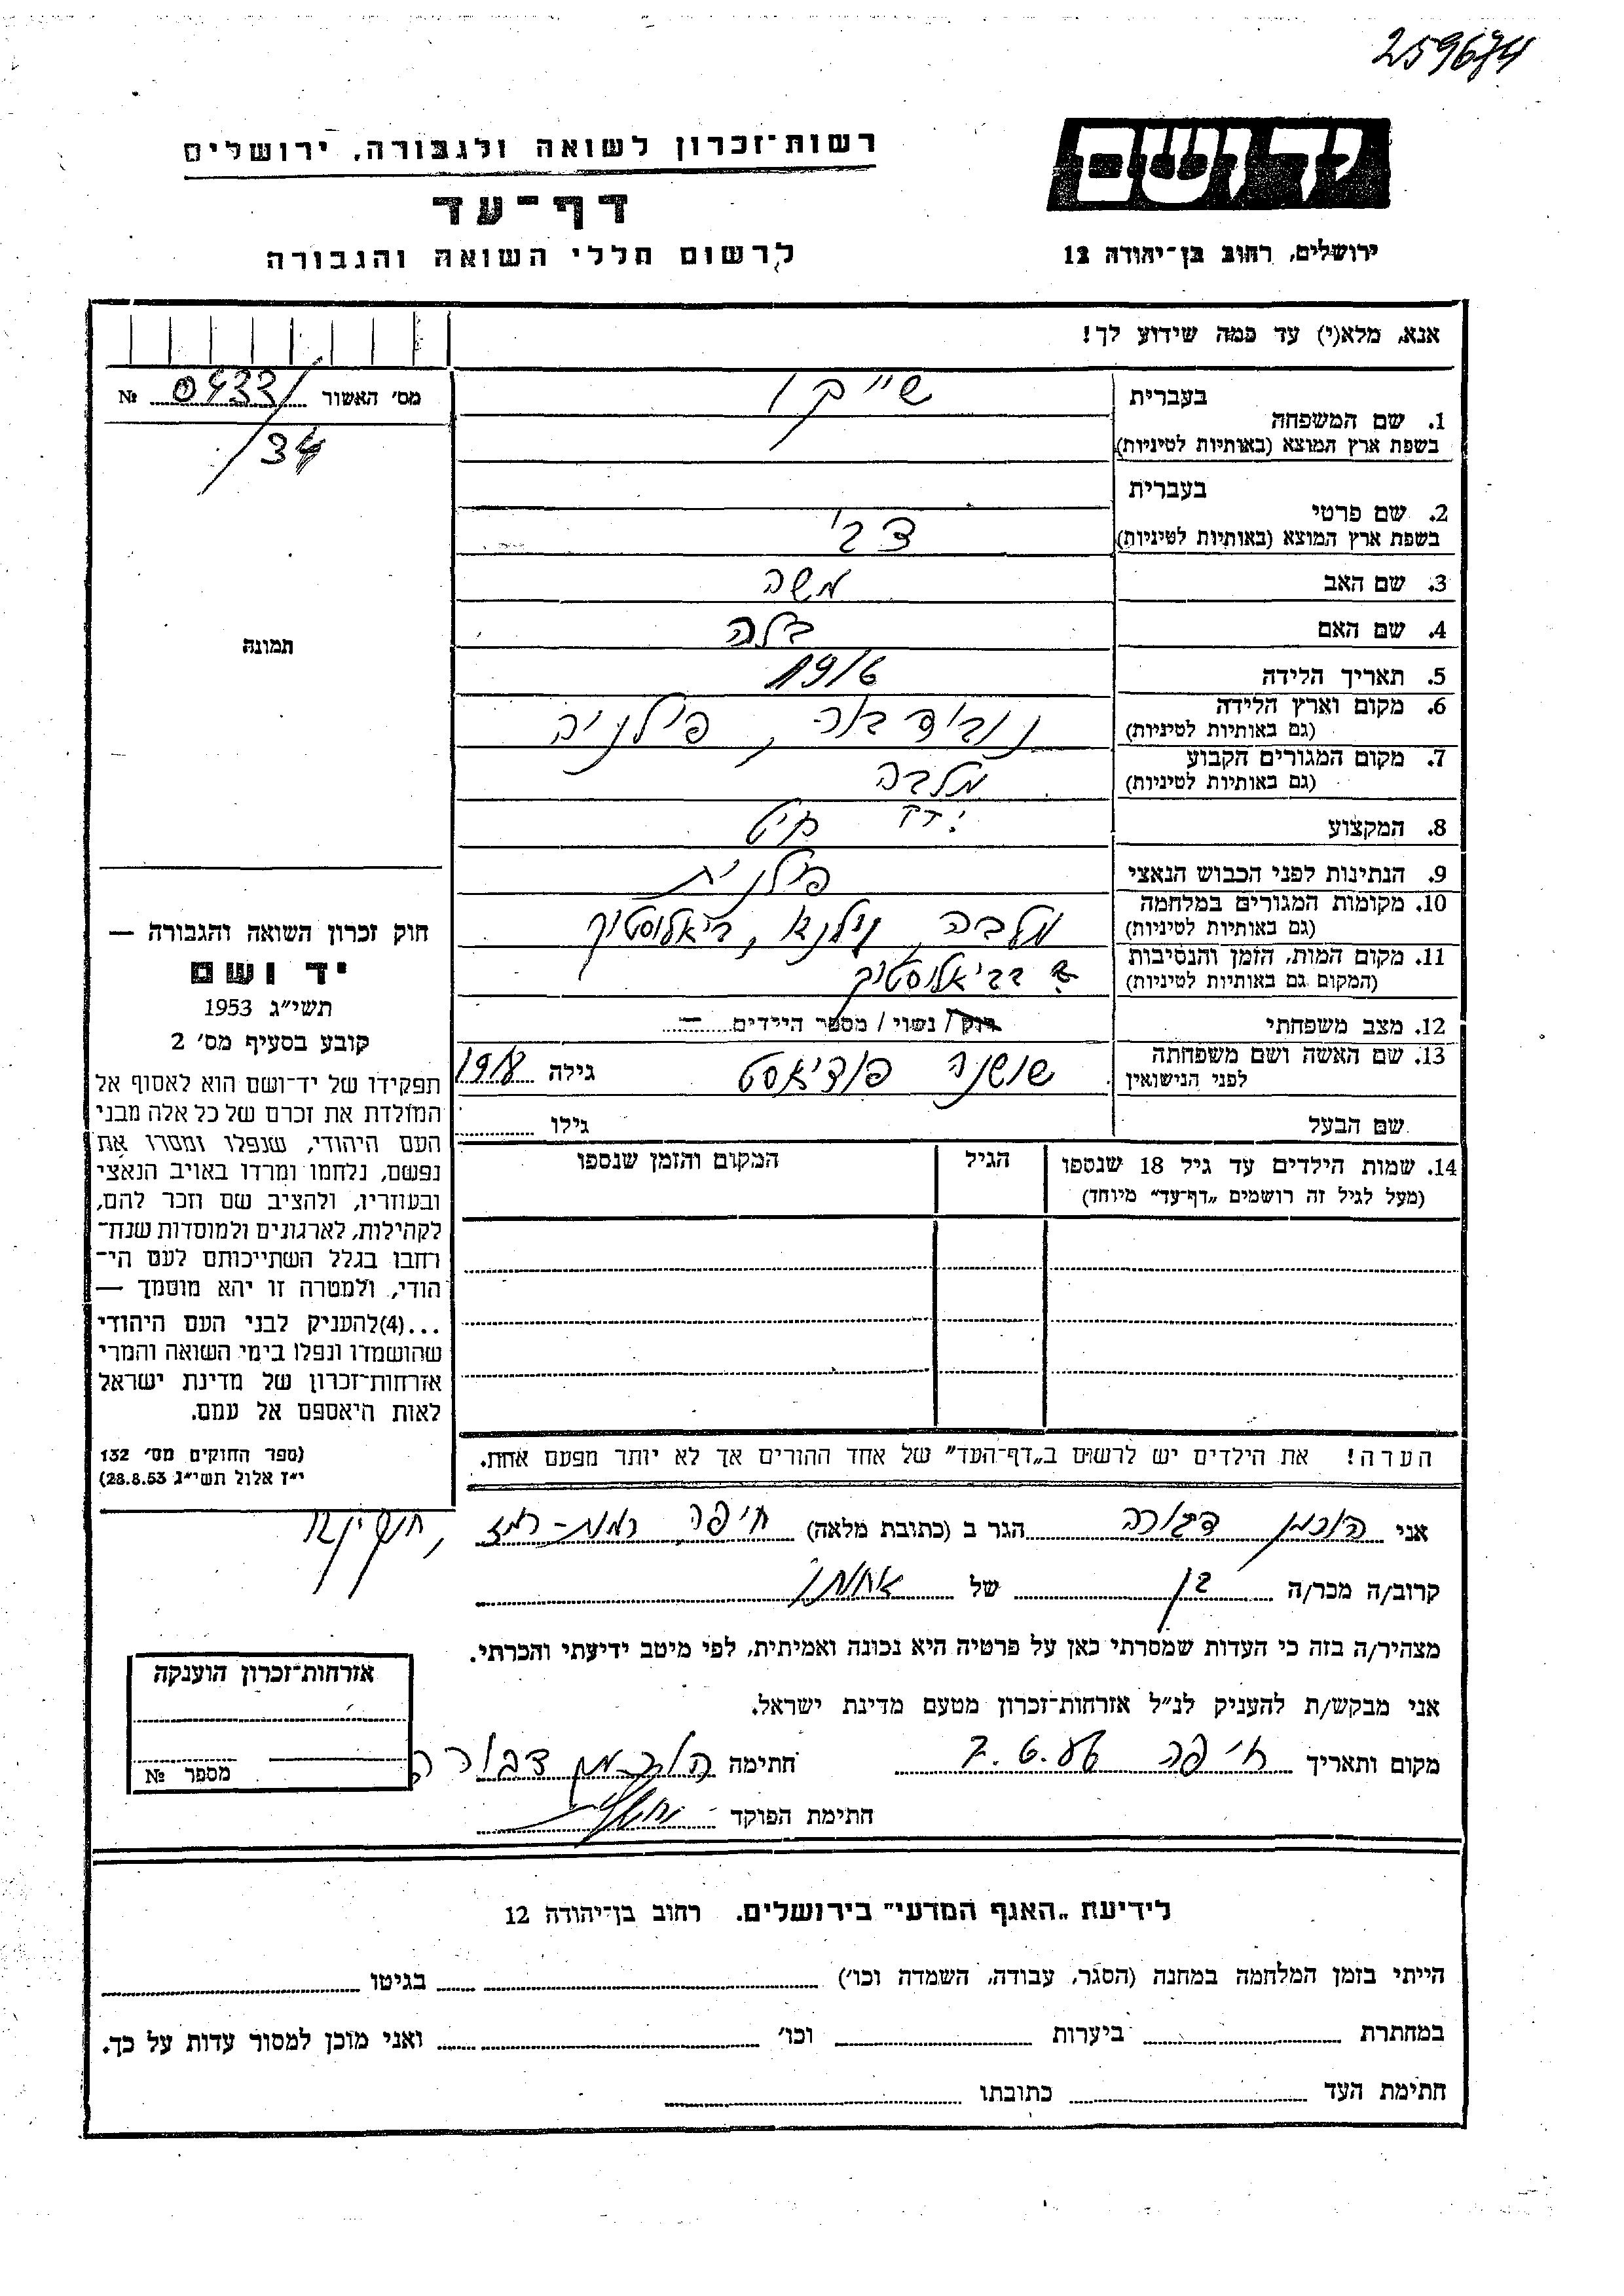 259674
יד ושם
ירושלים, רחוב בן־יהודה 12
רשות־זכרון לשואה ולגבורה, ירושלים
דף־עד
לרשום חללי השואה והגבורה
אנא, מלא(י) עד כמה שידוע לך!
מס׳ האשור № 0433/
/34
תמונה
1. שם המשפחה
בעברית
בשפת ארץ המוצא (באותיות לטיניות)
2. שם פרטי
בעברית
בשפת ארץ המוצא (באותיות לטיניות)
צבי
3. שם האב משה
4. שם האם בלה
5. תאריך הלידה 1916
6. מקום וארץ הלידה
(גם באותיות לטיניות)
פולניה
7. מקום המגורים הקבוע
(גם באותיות לטיניות)
8. המקצוע
9. הנתינות לפני הכבוש הנאצי פולנית
10. מקומות המגורים במלחמה
(גם באותיות לטיניות)
וילנא, ביאלוסטוק
11. מקום המות, הזמן והנסיבות
(המקום גם באותיות לטיניות)
בביאלוסטוק
12. מצב משפחתי רוק / נשוי / מספר הילדים —
13. שם האשה ושם משפחתה
לפני הנישואין
שושנה גילה 1918
שם הבעל גילו
14. שמות הילדים עד גיל 18 שנספו
(מעל לגיל זה רושמים „דף־עד״ מיוחד)
הגיל
המקום והזמן שנספו
הערה! את הילדים יש לרשום ב„דף־העד״ של אחד ההורים אך לא יותר מפעם אחת.
חוק זכרון השואה והגבורה —
יד ושם
תשי״ג 1953
קובע בסעיף מס׳ 2
תפקידו של יד־ושם הוא לאסוף אל
המולדת את זכרם של כל אלה מבני
העם היהודי, שנפלו ומסרו את
נפשם, נלחמו ומרדו באויב הנאצי
ובעוזריו, ולהציב שם וזכר להם,
לקהילות, לארגונים ולמוסדות שנח־
רחבו בגלל השתייכותם לעם הי־
הודי, ולמטרה זו יהא מוסמך —
...(4)להעניק לבני העם היהודי
שהושמדו ונפלו בימי השואה והמרי
אזרחות־זכרון של מדינת ישראל
לאות היאספם אל עמם.
(ספר החוקים מס׳ 132
י״ז אלול תשי״ג 28.8.53)
אני הוכמן דבורה הגר ב (כתובת מלאה) חיפה רמת-רמז,
קרוב/ה מכר/ה בן של אחותו
מצהיר/ה בזה כי העדות שמסרתי כאן על פרטיה היא נכונה ואמיתית, לפי מיטב ידיעתי והכרתי.
אני מבקש/ת להעניק לנ״ל אזרחות־זכרון מטעם מדינת ישראל.
מקום ותאריך חיפה 7.6.56 חתימה הוכמן דבורה
חתימת הפוקד
אזרחות־זכרון הוענקה
מספר №
לידיעת „האגף המדעי״ בירושלים. רחוב בן־יהודה 12
הייתי בזמן המלחמה במחנה (הסגר, עבודה, השמדה וכו׳) בגיטו
במחתרת ביערות וכו׳ ואני מוכן למסור עדות על כך.
חתימת העד כתובתו